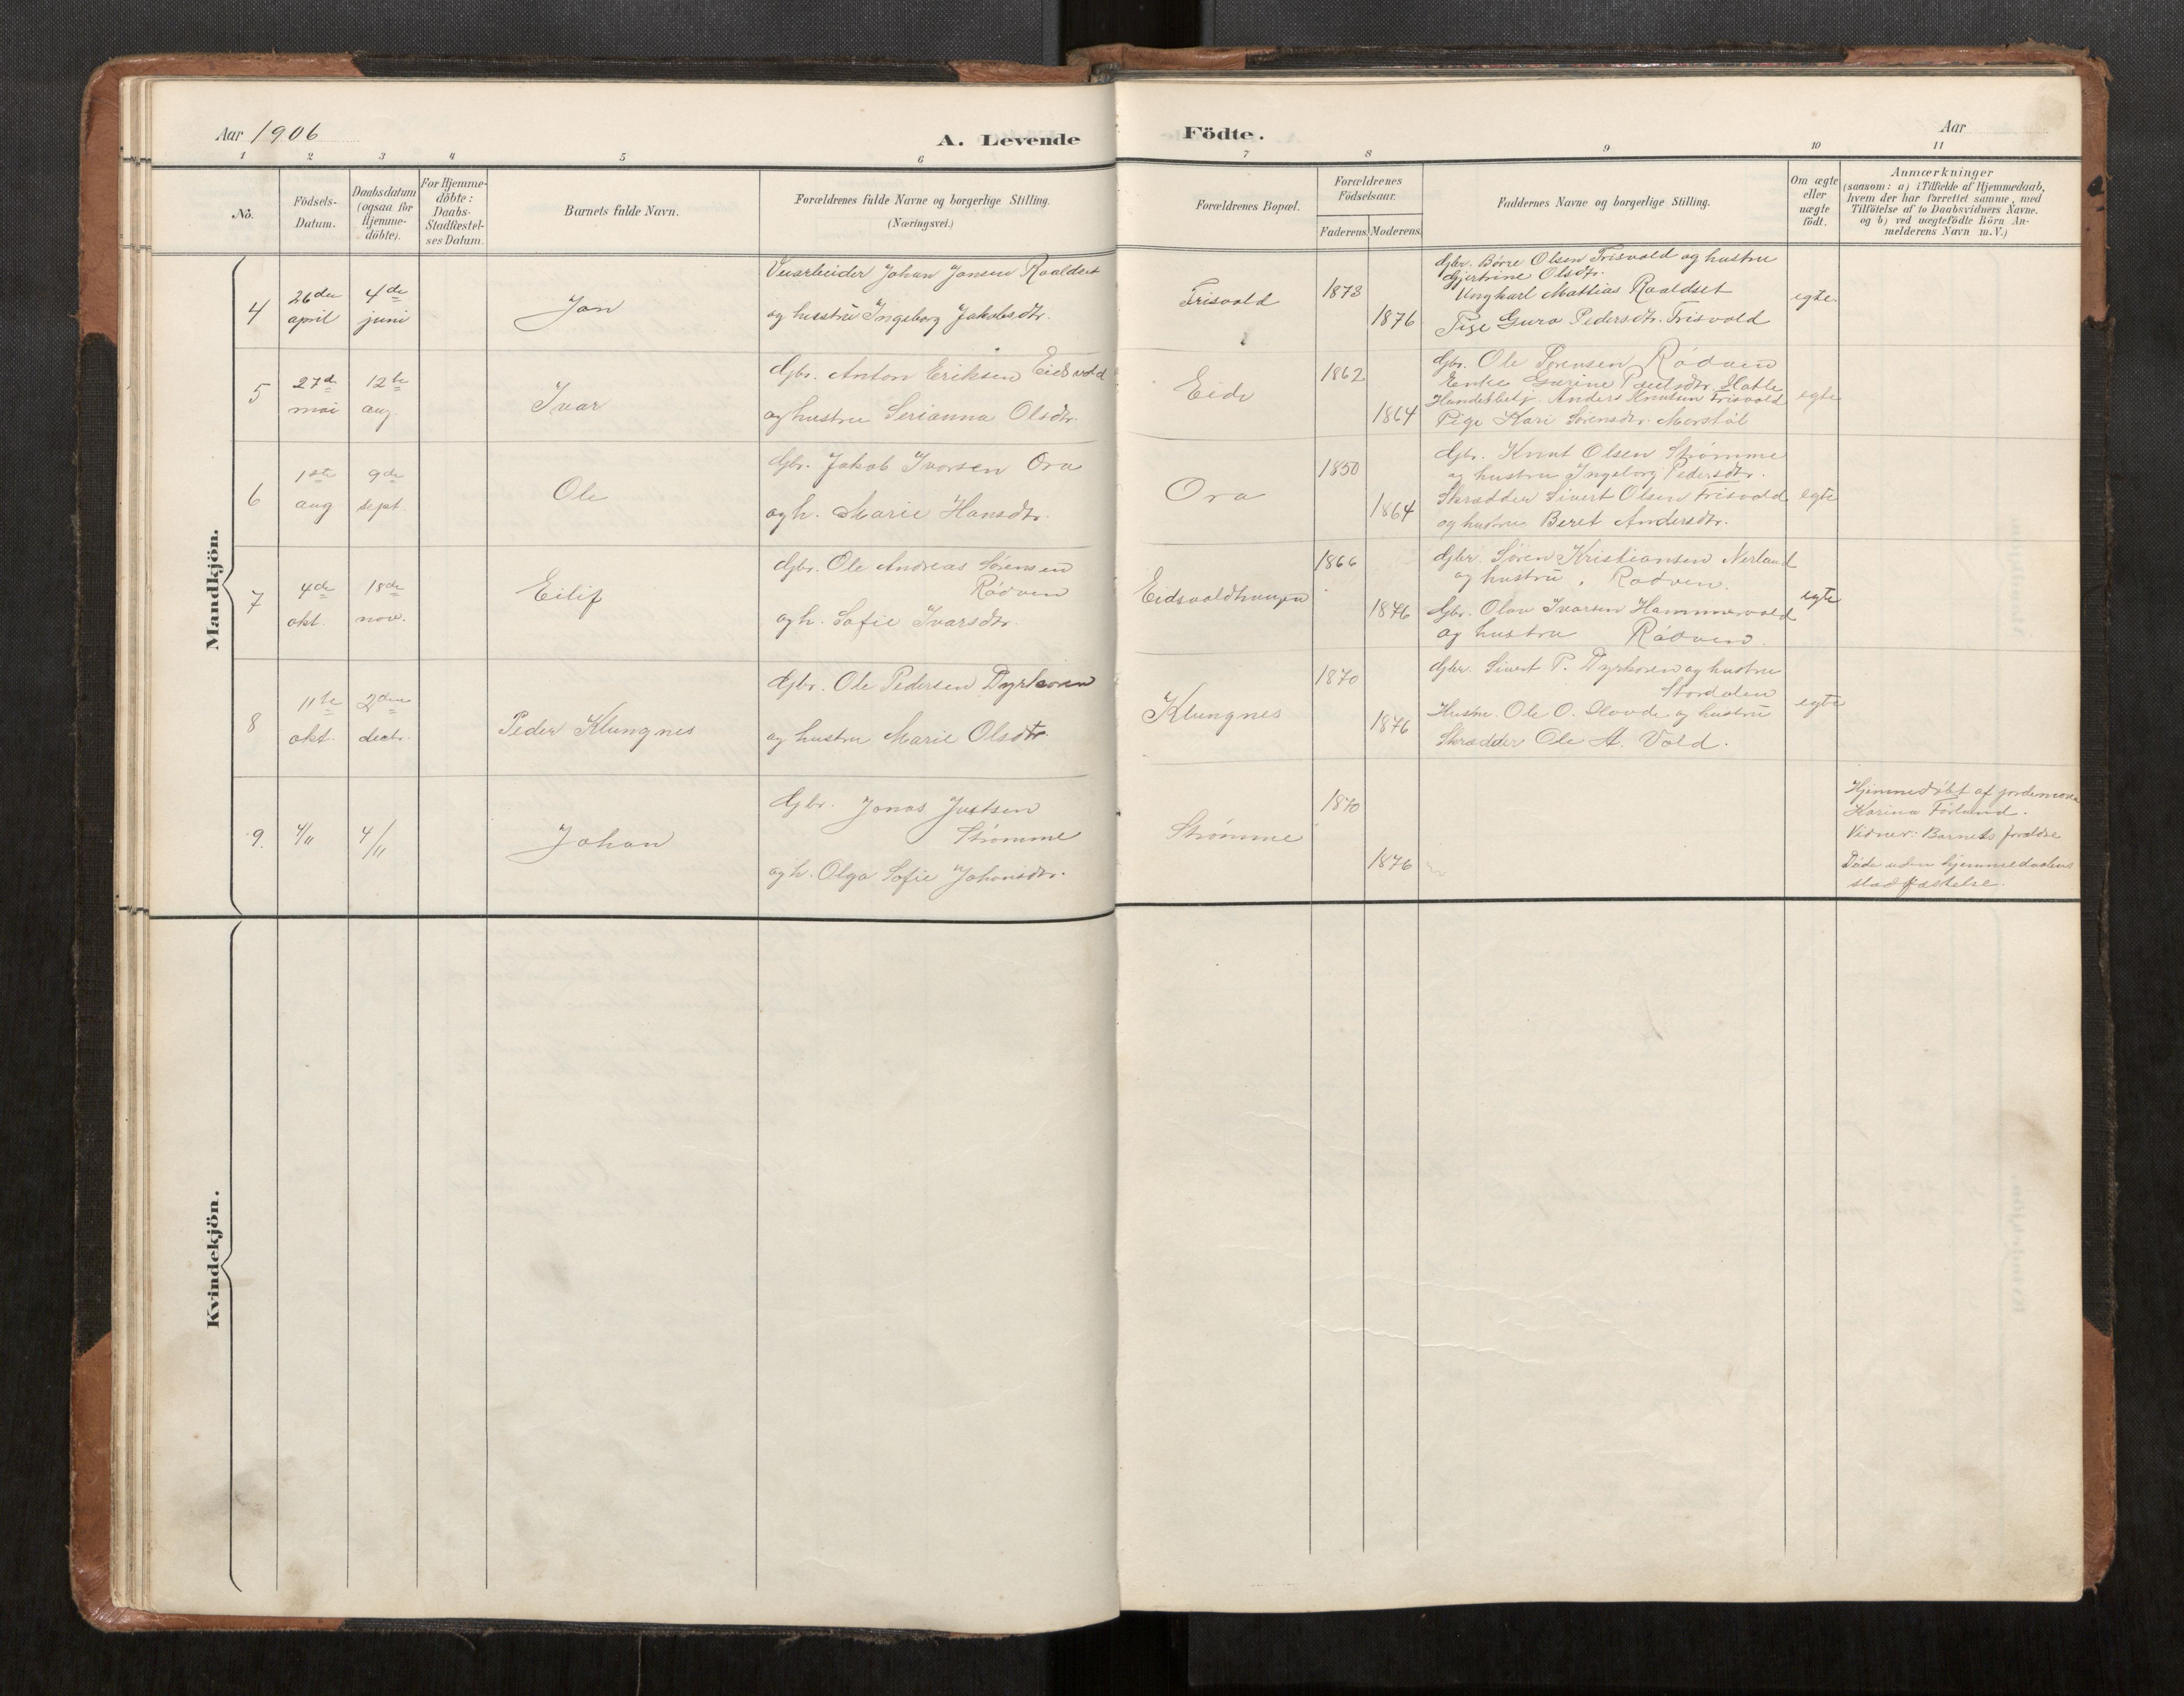 Aar 1906
A. Levende Födte.
Aar
1 2 3 4 5 6 7 8 9 10 11
No.
Födsels-Datum.
Daabsdatum (ogsaa for Hjemme-döbte).
For Hjemme-döbte: Daabs-Stadfæstel-ses Datum.
Barnets fulde Navn.
Forældrenes fulde Navne og borgerlige Stilling.
(Næringsvei.)
Forældrenes Bopæl.
Forældrenes Födselsaar.
Faderens. Moderens.
Faddernes Navne og borgerlige Stilling.
Om ægte eller uægte födt.
Anmærkninger
(saasom: a) i Tilfælde af Hjemmedaab,
hvem der har forrettet samme, med
Tilföielse af to Daabsvidners Navne.
og b) ved uægtefödte Börn An-
melderens Navn m. V.)
Mandkjön.
4
26de april
4de juni
Jon
Veiarbeider Johan Jonsen Roaldset
og hustru Ingeborg Jakobsdtr.
Trisvold
1873
1876
Gbr. Børre Olsen Trisvold og hustru
Gjertrine Olsdtr.
Ungkarl Mattias Roaldset
Pige Guro Pedersdtr. Trisvold
egte.
5
27de mai
12te aug.
Ivar
Gbr. Anton Eriksen Eidsvold
og hustru Serianna Olsdtr.
Eide
1862
1864
Gbr. Ole Sørensen Rødven
Enke Gurine Poulsdtr. Hatle
Handelsbetj. Anders Knutsen Trisvold
Pige Kari Sørensdtr. Morstøl
egte
6
1ste aug
9de sept.
Ole
Gbr. Jakob Ivarsen Ora
og h. Marie Hansdtr.
Ora
1850
1864
Gbr. Knut Olsen Strømme
og hustru Ingeborg Pedersdtr.
Skrædder Sivert Olsen Trisvold
og hustru Beret Andersdtr.
egte
7
4de okt.
18de nov.
Eilif
Gbr. Ole Andreas Sørensen
Rødven
og h. Sofie Ivarsdtr.
Eidsvoldhaugen
1866
1876
Gbr. Søren Kristiansen Nerland
og hustru, Rødven.
Gbr. Olav Ivarsen Hammervold
og hustru Rødven.
egte
8
11te okt.
2den decbr.
Peder Klungnes
Gbr. Ole Pedersen Dyrkoren
og hustru Marie Olsdtr.
Klungnes
1870
1876
Gbr. Sivert P. Dyrkoren og hustru
Stordalen
Husm. Ole O. Hovde og hustru
Skrædder Ole A. Vold.
egte
9.
4/11
4/11
Johan
Gbr. Jonas Justsen
Strømme
og h. Olga Sofie Johansdtr.
Strømme
1870
1876
Hjemmedøbt af jordemoder
Karina Førlund.
Vidner: Barnets foreldre
Døde uden hjemmedaabens
stadfæstelse.
Kvindekjön.